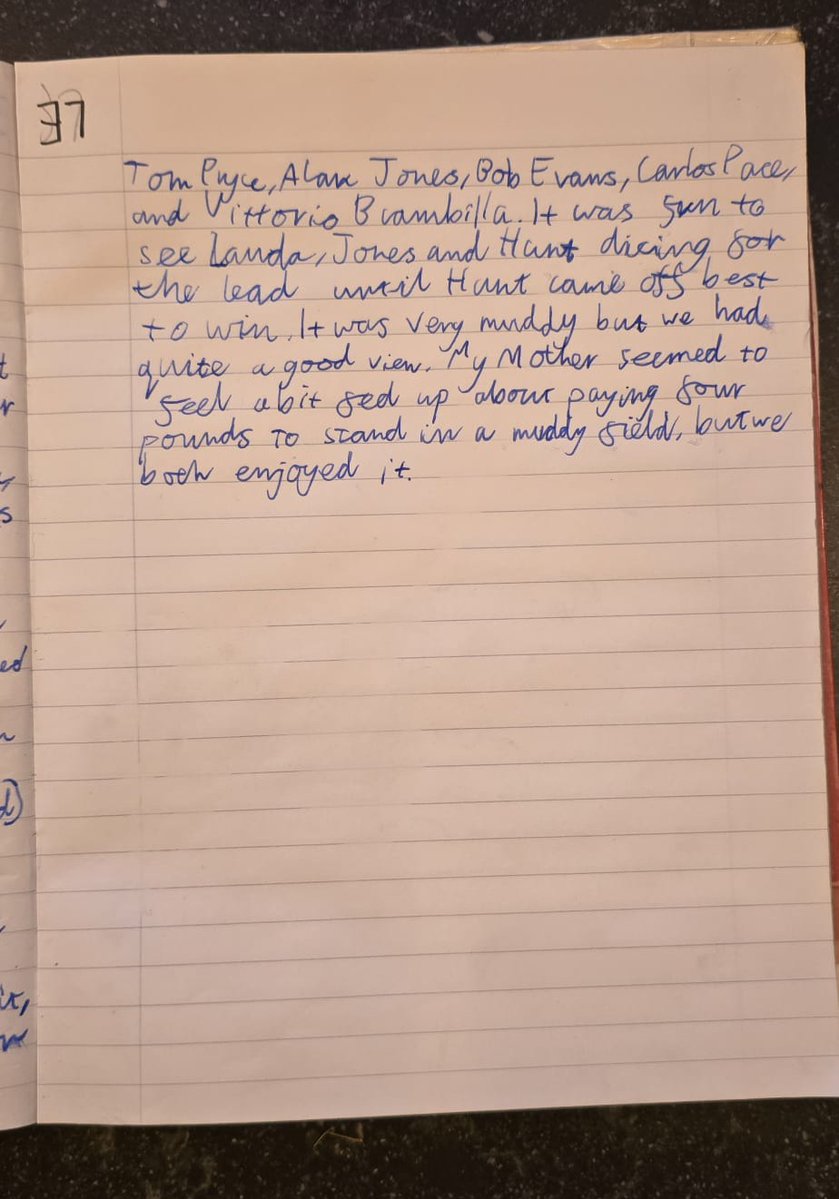 37
Tom Pryce, Alan Jones, Bob Evans, Carlos Pace,
and Vittorio Brambilla. It was fun to
see Lauda, Jones and Hunt dicing for
the lead until Hunt came off best
to win. It was very muddy but we had
quite a good view. My Mother seemed to
feel a bit fed up about paying four
pounds to stand in a muddy field, but we
both enjoyed it.
t
r
y
s
ed
d)